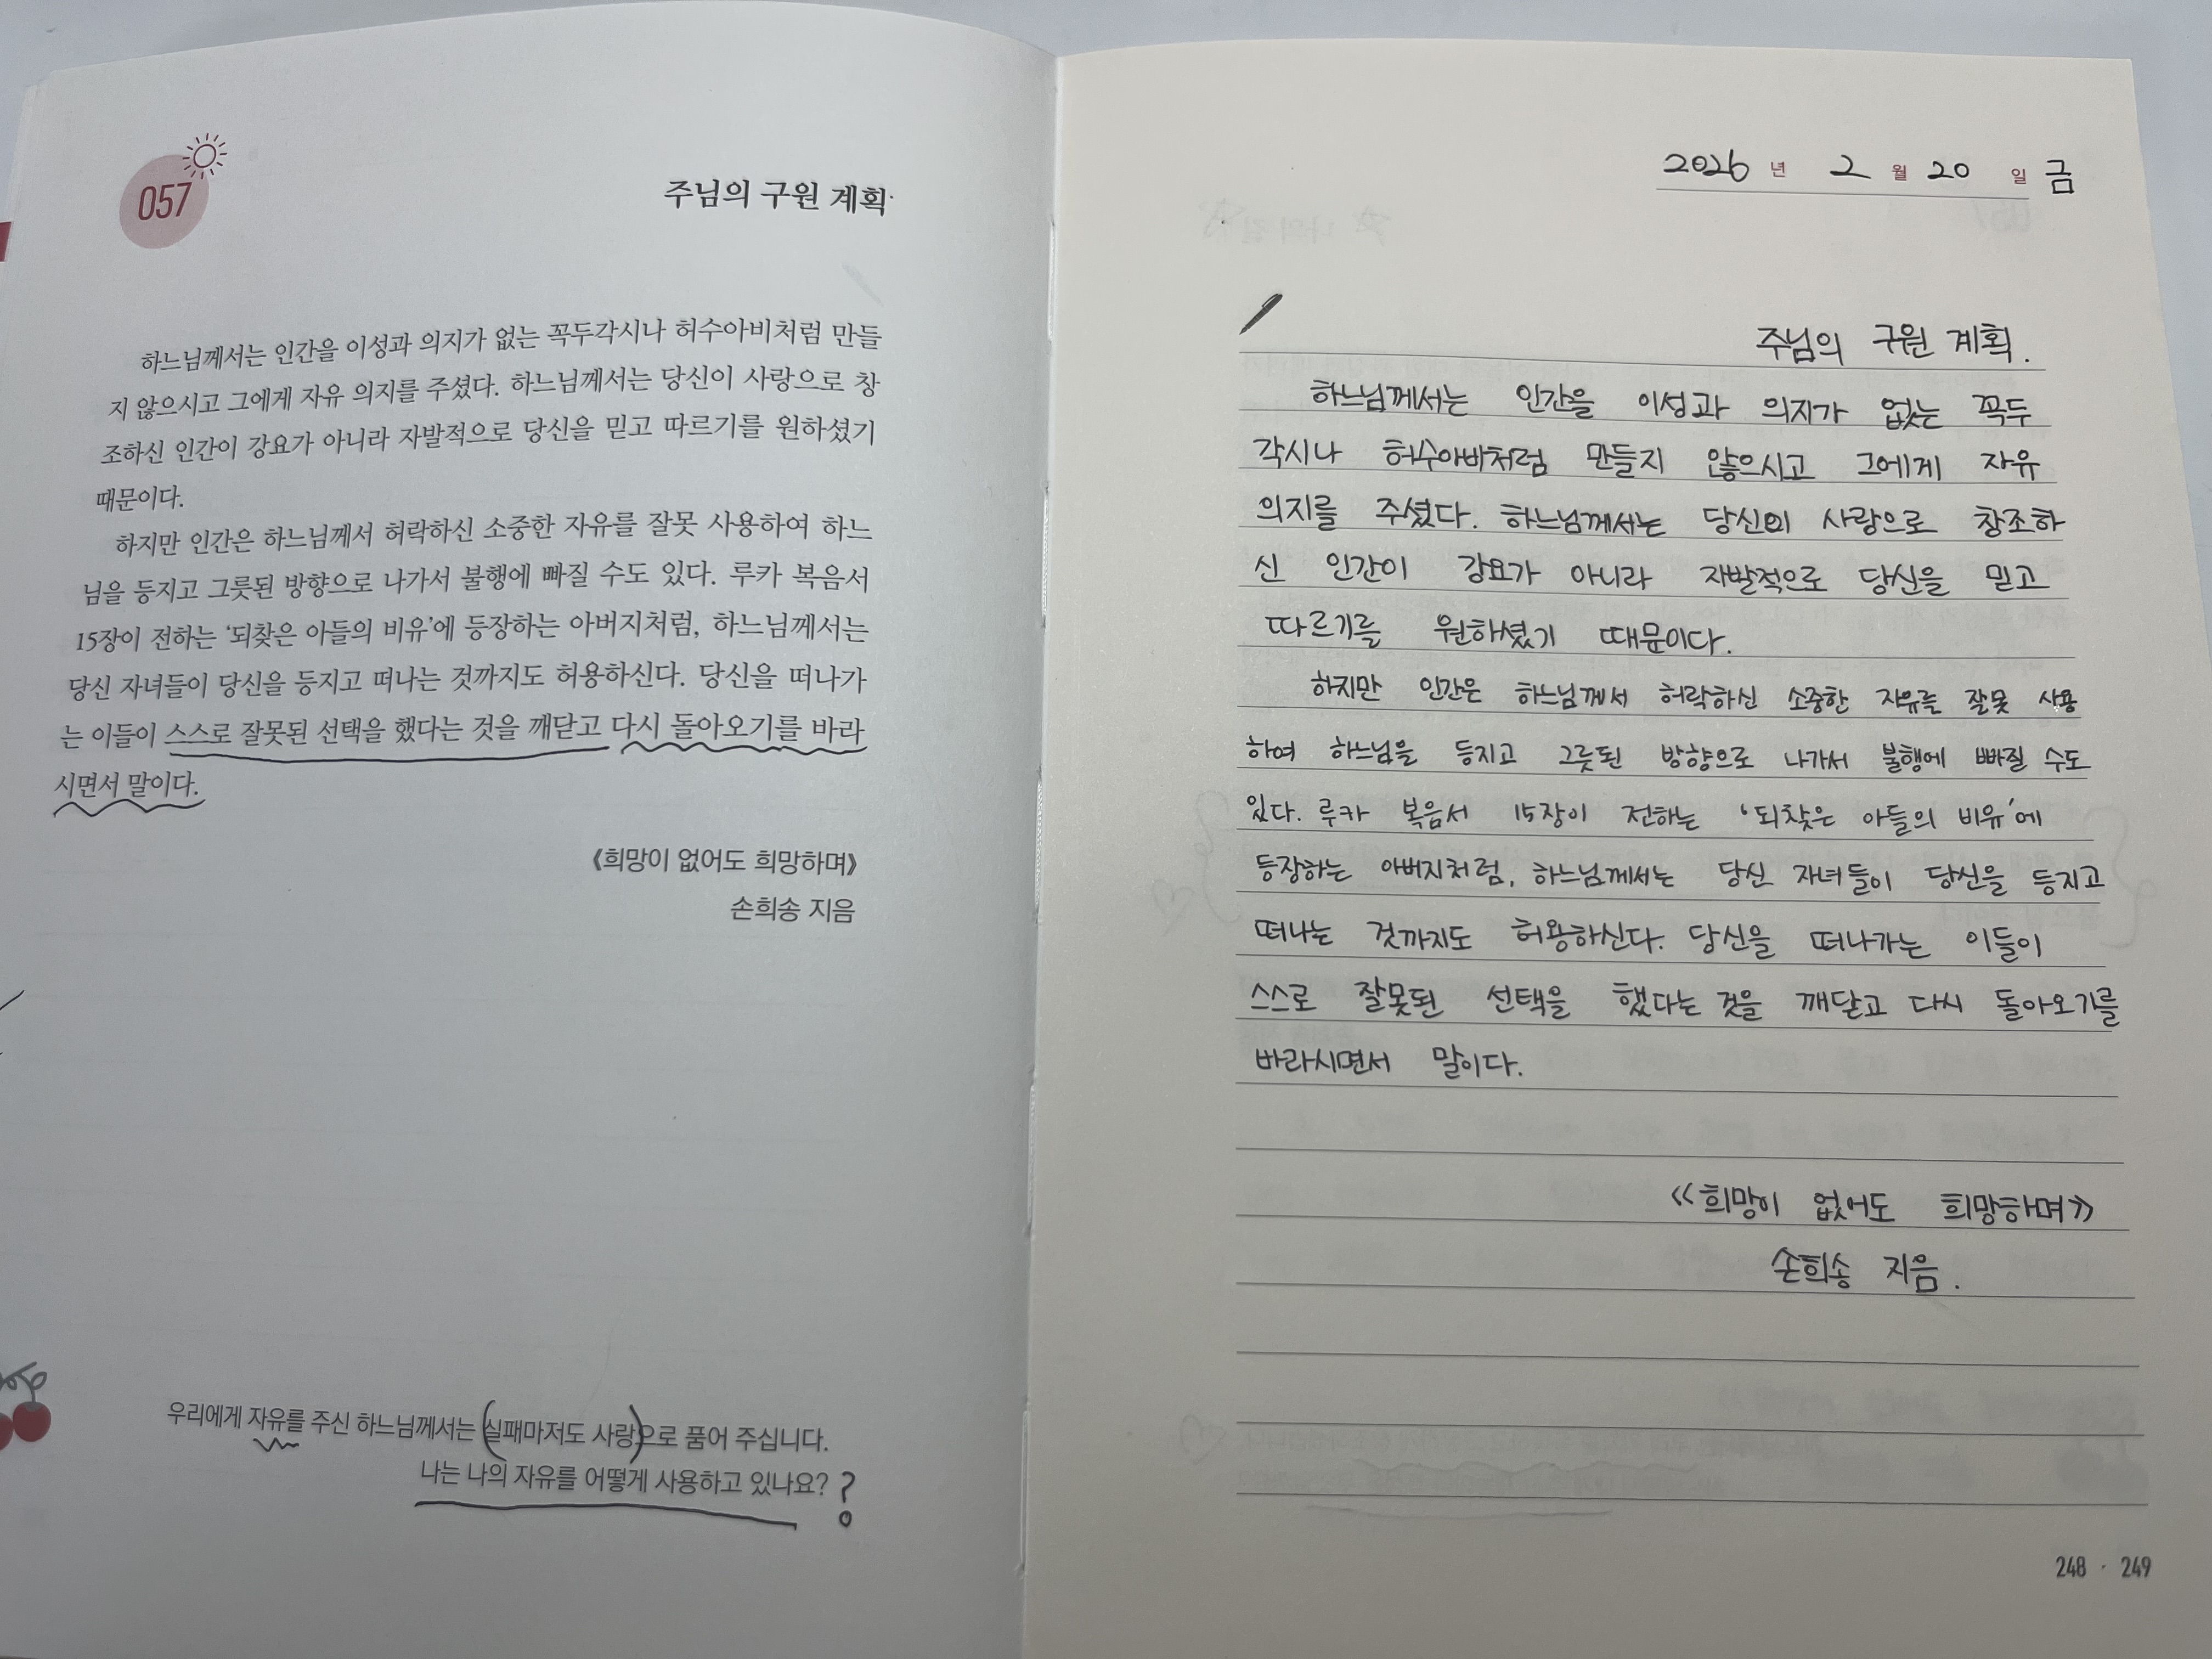 057
주님의 구원 계획
하느님께서는 인간을 이성과 의지가 없는 꼭두각시나 허수아비처럼 만들
지 않으시고 그에게 자유 의지를 주셨다. 하느님께서는 당신이 사랑으로 창
조하신 인간이 강요가 아니라 자발적으로 당신을 믿고 따르기를 원하셨기
때문이다.
하지만 인간은 하느님께서 허락하신 소중한 자유를 잘못 사용하여 하느
님을 등지고 그릇된 방향으로 나가서 불행에 빠질 수도 있다. 루카 복음서
15장이 전하는 ‘되찾은 아들의 비유’에 등장하는 아버지처럼, 하느님께서는
당신 자녀들이 당신을 등지고 떠나는 것까지도 허용하신다. 당신을 떠나가
는 이들이 스스로 잘못된 선택을 했다는 것을 깨닫고 다시 돌아오기를 바라
시면서 말이다.
《희망이 없어도 희망하며》
손희송 지음
우리에게 자유를 주신 하느님께서는 (실패마저도 사랑)으로 품어 주십니다.
나는 나의 자유를 어떻게 사용하고 있나요? ?
2026 년 2 월 20 일 금
주님의 구원 계획.
하느님께서는 인간을 이성과 의지가 없는 꼭두
각시나 허수아비처럼 만들지 않으시고 그에게 자유
의지를 주셨다. 하느님께서는 당신의 사랑으로 창조하
신 인간이 강요가 아니라 자발적으로 당신을 믿고
따르기를 원하셨기 때문이다.
하지만 인간은 하느님께서 허락하신 소중한 자유를 잘못 사용
하여 하느님을 등지고 그릇된 방향으로 나가서 불행에 빠질 수도
있다. 루카 복음서 15장이 전하는 ‘되찾은 아들의 비유’에
등장하는 아버지처럼, 하느님께서는 당신 자녀들이 당신을 등지고
떠나는 것까지도 허용하신다. 당신을 떠나가는 이들이
스스로 잘못된 선택을 했다는 것을 깨닫고 다시 돌아오기를
바라시면서 말이다.
《희망이 없어도 희망하며》
손희송 지음.
248 · 249